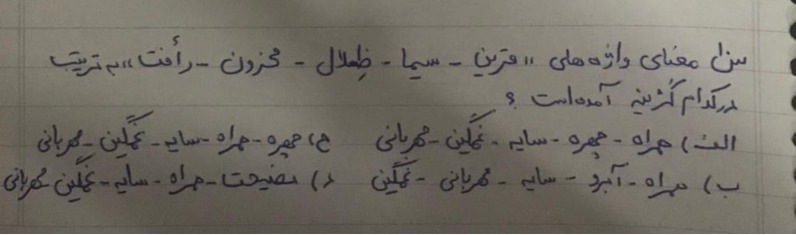 س۱ معنای واژه های «قرین - سیما - ظِلال - محزون - رأفت» به ترتیب
در کدام گزینه آمده است ؟
الف) همراه - چهره - سایه - غمگین - مهربانی ج) چهره - همراه - سایه - غمگین - مهربانی
ب) همراه - آبرو - سایه - مهربانی - غمگین د) نصیحت - همراه - سایه - غمگین - مهربانی